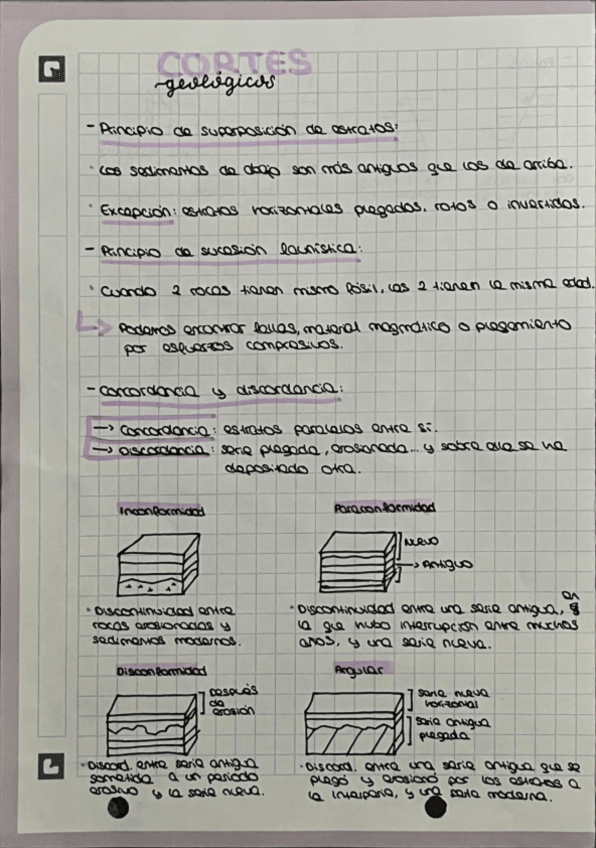 CORTES
geológicos
- Principio de superposición de estratos:
· Los sedimentos de abajo son más antiguos que los de arriba.
· Excepción: estratos horizontales plegados, rotos o invertidos.
- Principio de sucesión faunística:
· Cuando 2 rocas tienen mismo fósil, las 2 tienen la misma edad.
Podemos encontrar fallas, material magmático o plegamiento
por esfuerzos compresivos.
- Concordancia y discordancia:
→ Concordancia: estratos paralelos entre sí.
→ Discordancia: serie plegada, erosionada... y sobre ella se ha
depositado otra.
Inconformidad
· Discontinuidad entre
rocas erosionadas y
sedimentos modernos.
Paraconformidad
Nuevo
→ Antiguo
· Discontinuidad entre una serie antigua, en
la que hubo interrupción entre muchos
años, y una serie nueva.
Disconformidad
después
de
erosión
· Discord. entre serie antigua
sometida a un periodo
erosivo y la serie nueva.
Angular
serie nueva
horizontal
serie antigua
plegada
· Discord. entre una serie antigua que se
plegó y erosionó por los estratos a
la intemperie, y una serie moderna.